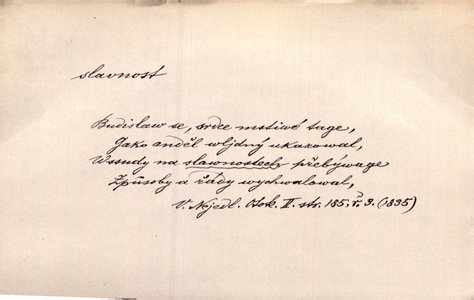 slavnost
Budislaw se, srdce mstiwé tage,
Gako anděl wljdný ukazowal,
Wssudy na slawnostech přebýwage
Způsoby a řády wychwalowal,
V. Nejedl. Otok. II. str. 185. ř. 3. (1835)